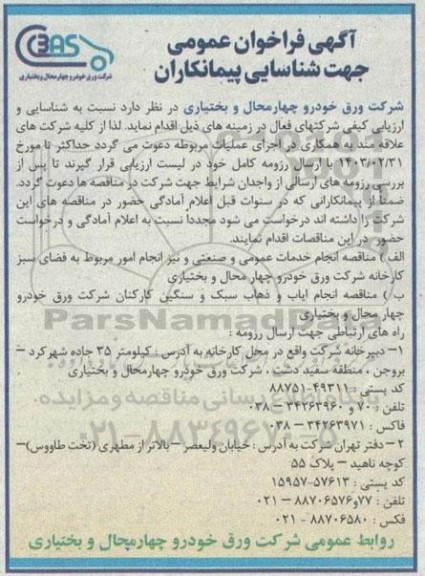 CBAS
شرکت ورق خودرو چهارمحال و بختیاری
آگهی فراخوان عمومی
جهت شناسایی پیمانکاران
شرکت ورق خودرو چهارمحال و بختیاری در نظر دارد نسبت به شناسایی و
ارزیابی کیفی شرکتهای فعال در زمینه های ذیل اقدام نماید. لذا از کلیه شرکت های
علاقه مند به همکاری در اجرای عملیات مربوطه دعوت می گردد حداکثر تا مورخ
۱۴۰۳/۰۲/۳۱ با ارسال رزومه کامل خود در لیست ارزیابی قرار گیرند تا پس از
بررسی رزومه های ارسالی از واجدان شرایط جهت شرکت در مناقصه ها دعوت گردد.
ضمناً از پیمانکارانی که در سنوات قبل اعلام آمادگی حضور در مناقصه های این
شرکت را داشته اند درخواست می شود مجدداً نسبت به اعلام آمادگی و درخواست
حضور در این مناقصات اقدام نمایند.
الف ) مناقصه انجام خدمات عمومی و صنعتی و نیز انجام امور مربوط به فضای سبز
کارخانه شرکت ورق خودرو چهار محال و بختیاری
ب ) مناقصه انجام ایاب و ذهاب سبک و سنگین کارکنان شرکت ورق خودرو
چهار محال و بختیاری
ParsNamadData
راه های ارتباطی جهت ارسال رزومه :
۱– دبیرخانه شرکت واقع در محل کارخانه به آدرس : کیلومتر ۳۵ جاده شهرکرد –
بروجن ، منطقه سفید دشت ، شرکت ورق خودرو چهارمحال و بختیاری
کد پستی : ۴۹۳۱۱–۸۸۷۵۱
پایگاه اطلاع رسانی مناقصه و مزایده
تلفن : ۷۰ و ۳۴۲۶۳۹۶۰ – ۰۳۸
فاکس : ۳۴۲۶۳۹۷۱ – ۰۳۸
۰۲۱-۸۸۳۴۹۶۷۰-۵
۲– دفتر تهران شرکت به آدرس : خیابان ولیعصر – بالاتر از مطهری (تخت طاووس)–
کوچه ناهید – پلاک ۵۵
کد پستی : ۵۷۶۱۳–۱۵۹۵۷
تلفن : ۷۷و۸۸۷۰۶۵۷۶ – ۰۲۱
فکس : ۸۸۷۰۶۵۸۰ - ۰۲۱
روابط عمومی شرکت ورق خودرو چهارمحال و بختیاری